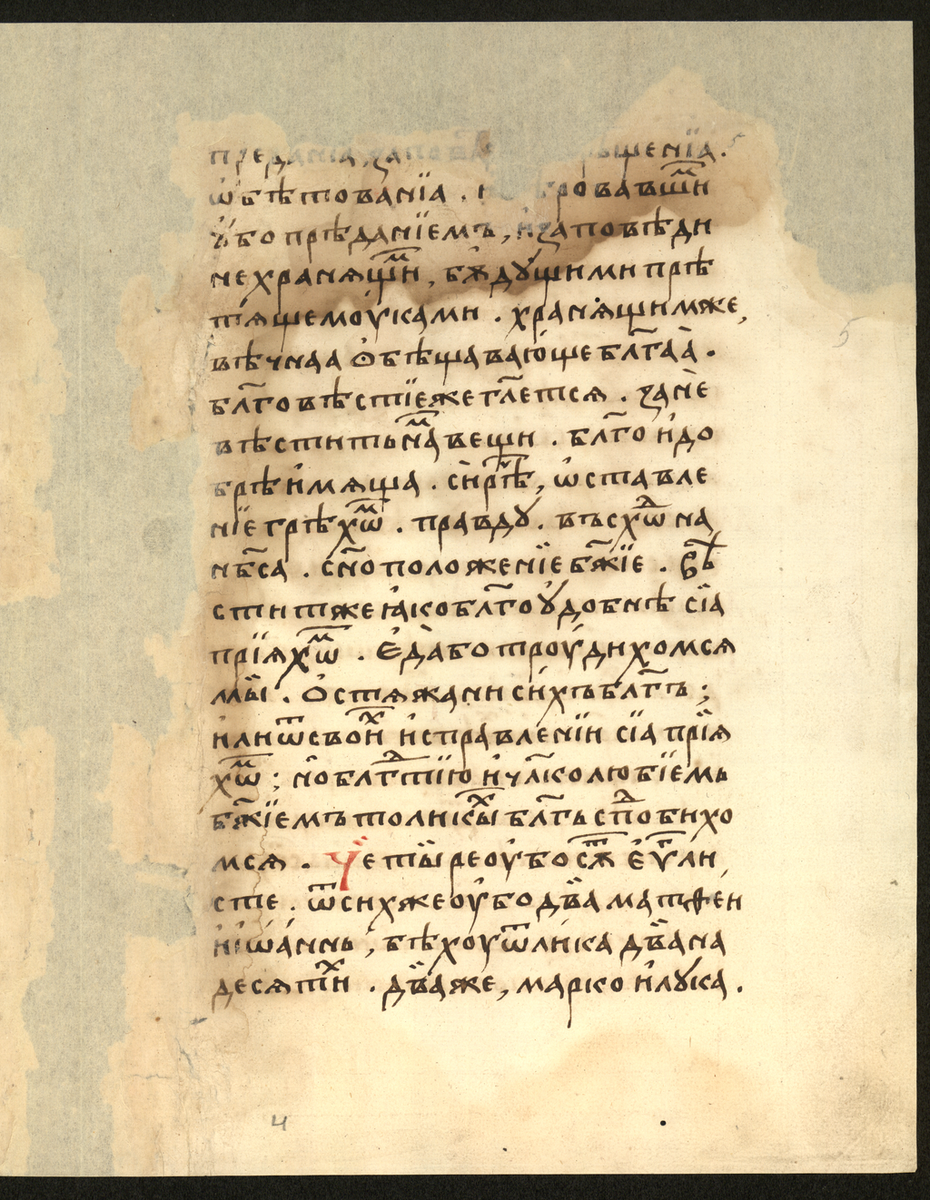 преданїа, за шенїа.
ѡбѣтованїа. ровавшⷨи
ꙋбо прѣданїемъ, и заповѣди
не хранѧщⷨи, бѫдꙋщими прѣ
тѧще моуками. хранѧщимже,
вѣчнаа ѻбѣщавающе бл҃гаа.
бл҃говѣстїе же гл҃етсѧ. зане
вѣстить нⷨа вещи. бл҃го и до
брѣ имѧща. сирⷱѣ, ѡставле
нїе грѣхѡⷨ. правдꙋ. въсхѡⷣ на
нб҃са. сн҃оположенїе бж҃їе.
стит же ꙗко бл҃го ꙋдобнѣ сїа
прїѧхѡⷨ. Еда бо троудихомсѧ
мы. ѻ стѧжани сихъ бл҃гъ;
или ѿ своиⷯ исправленїи сїа прїѧ
хѡⷨ; но бл҃гⷣтїю и чл҃колюбїемь
бж҃їемъ толикыⷯ бл҃гь спⷣобихо
мсѧ. Четыре оубо сꙋⷮ еѵⷢли
сте. ѿ сихже оубо два матѳеи
и иѡаннь, бѣхоу ѿ лика двана
десѧтиⷯ. дваже, марко и лꙋка.
5
4